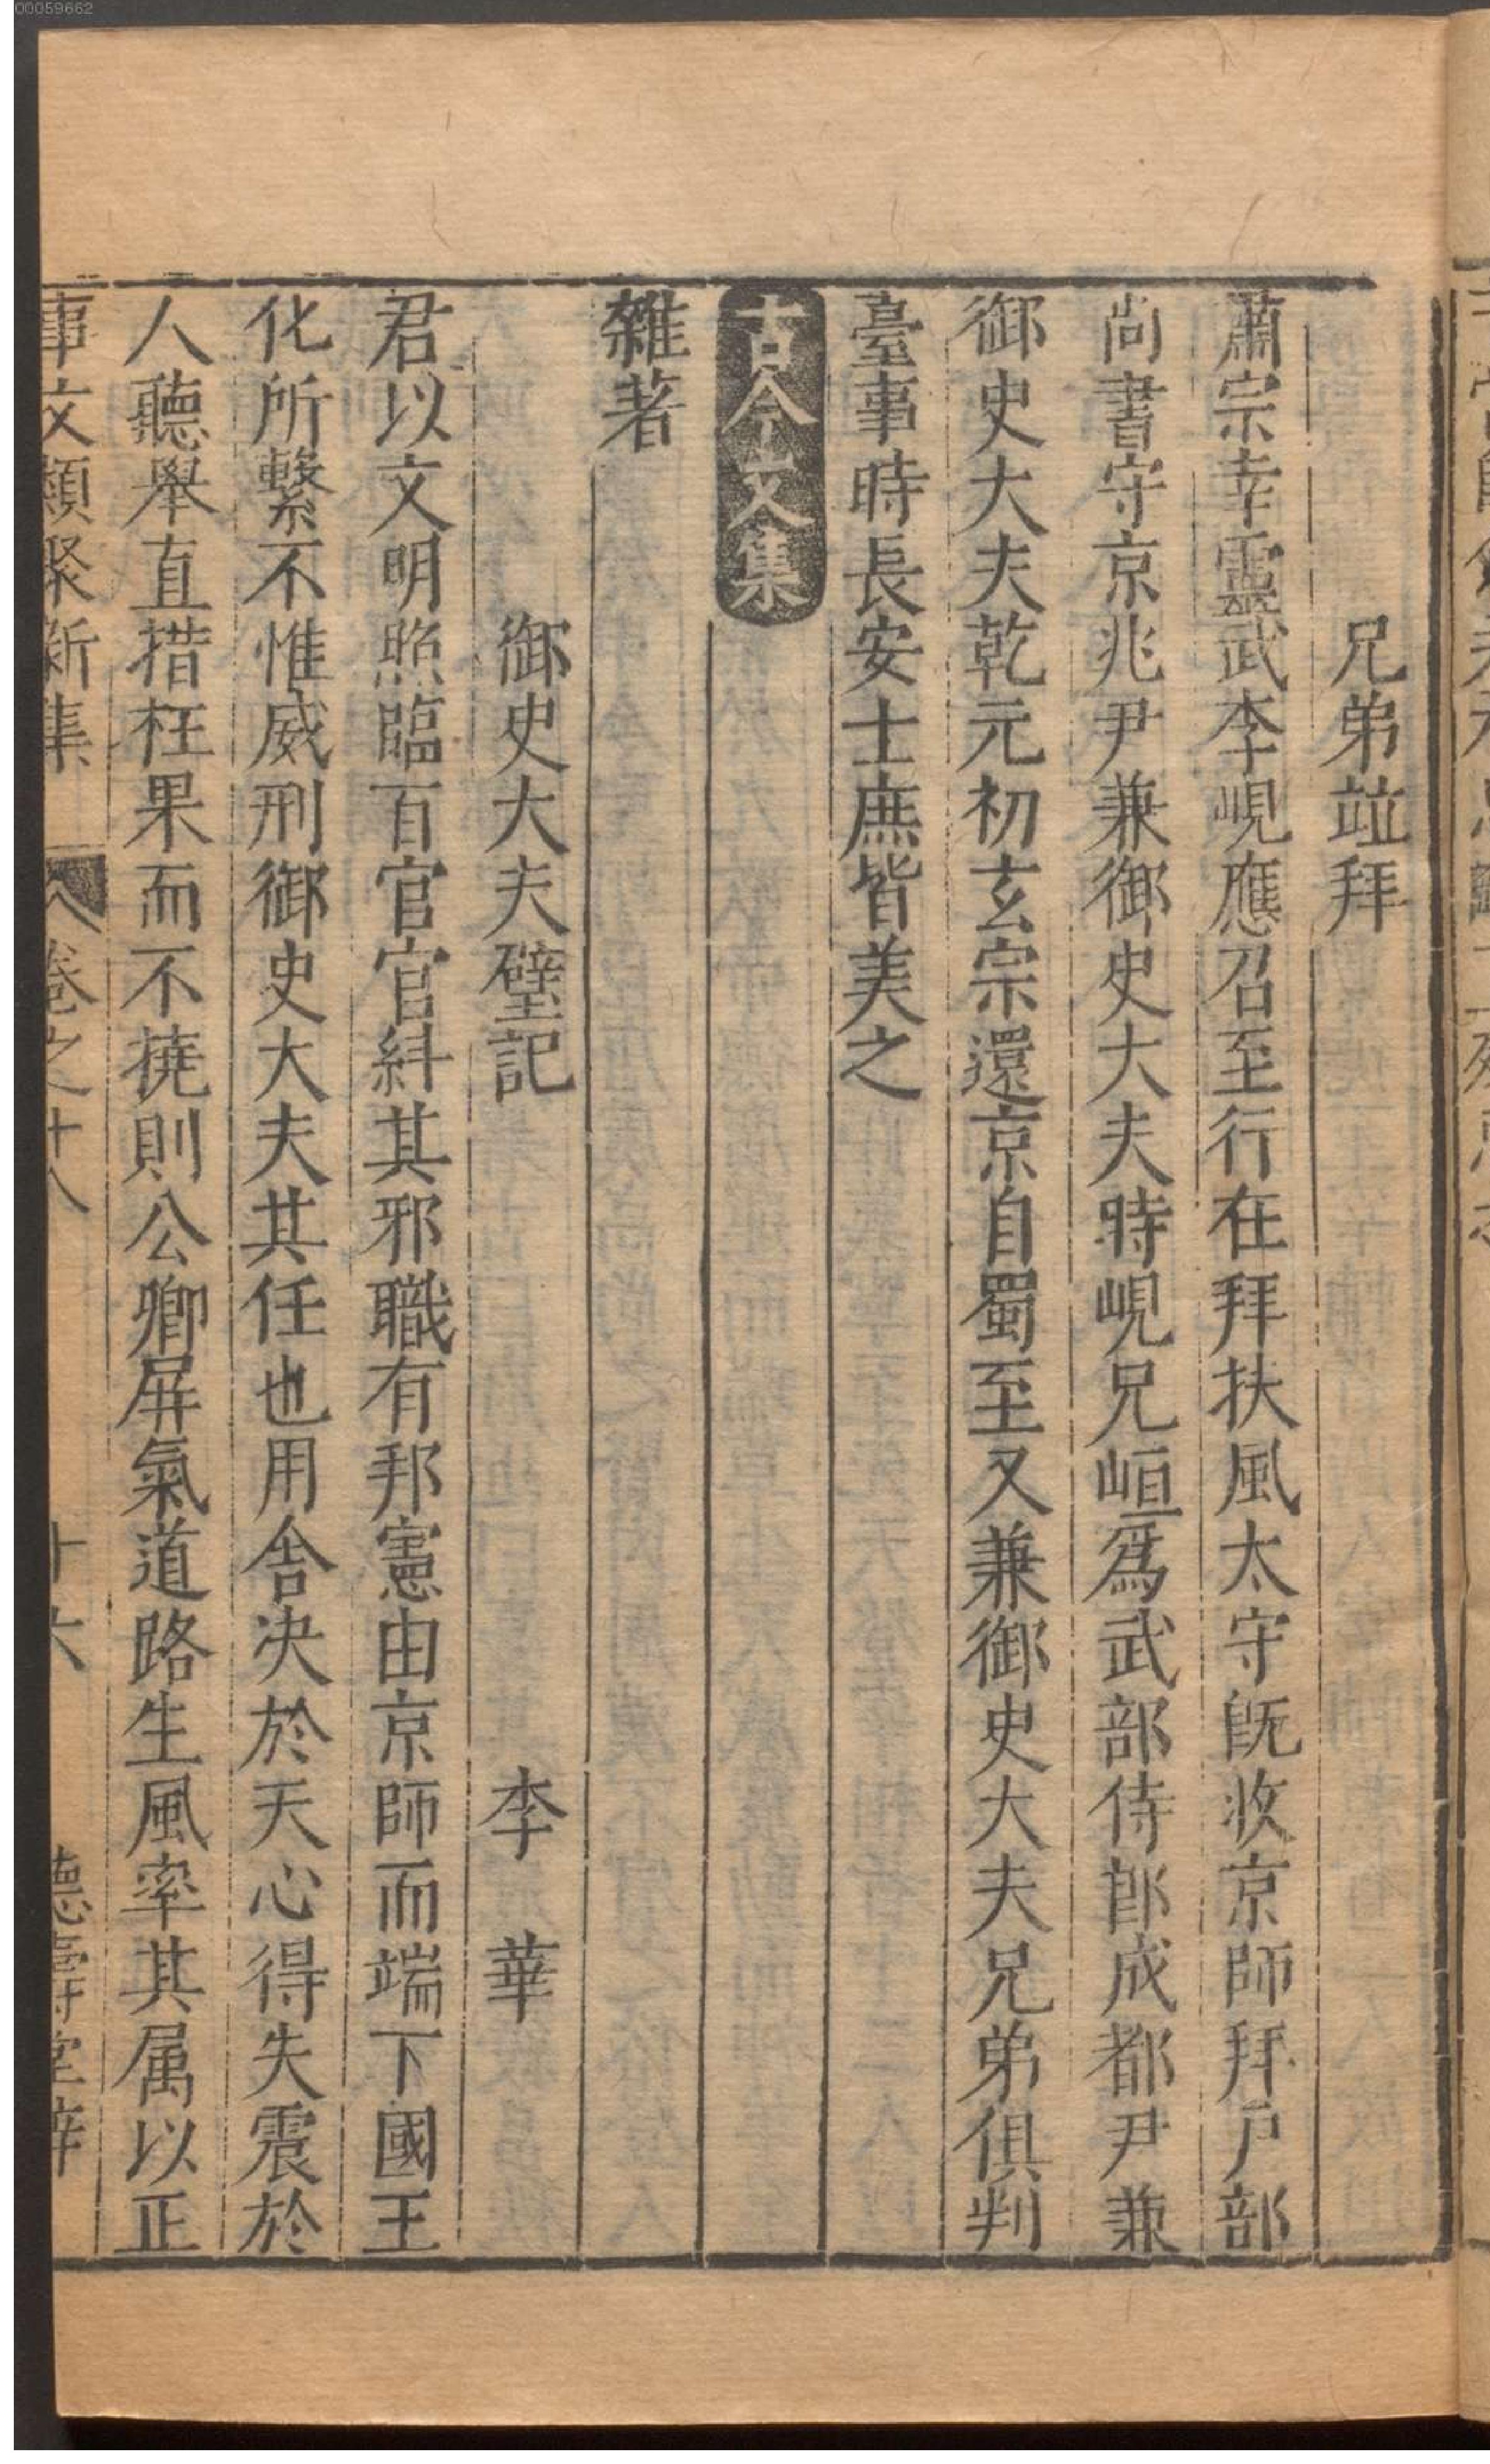 00059662
兄弟竝拜
肅宗幸靈武李峴應召至行在拜扶風太守旣收京師拜戸部
尚書守京兆尹兼御史大夫時峴兄峘爲武部侍郎成都尹兼
御史大夫乾元初玄宗還京自蜀至又兼御史大夫兄弟俱判
臺事時長安士庶皆美之
古今文集
雜著
御史大夫壁記 李華
君以文明照臨百官官糾其邪職有邦憲由京師而端下國王
化所繫不惟威刑御史大夫其任也用舍决於天心得失震於
人聽舉直措枉果而不撓則公卿屏氣道路生風率其属以正
事文類聚新集 卷之十八 十六 德壽堂梓